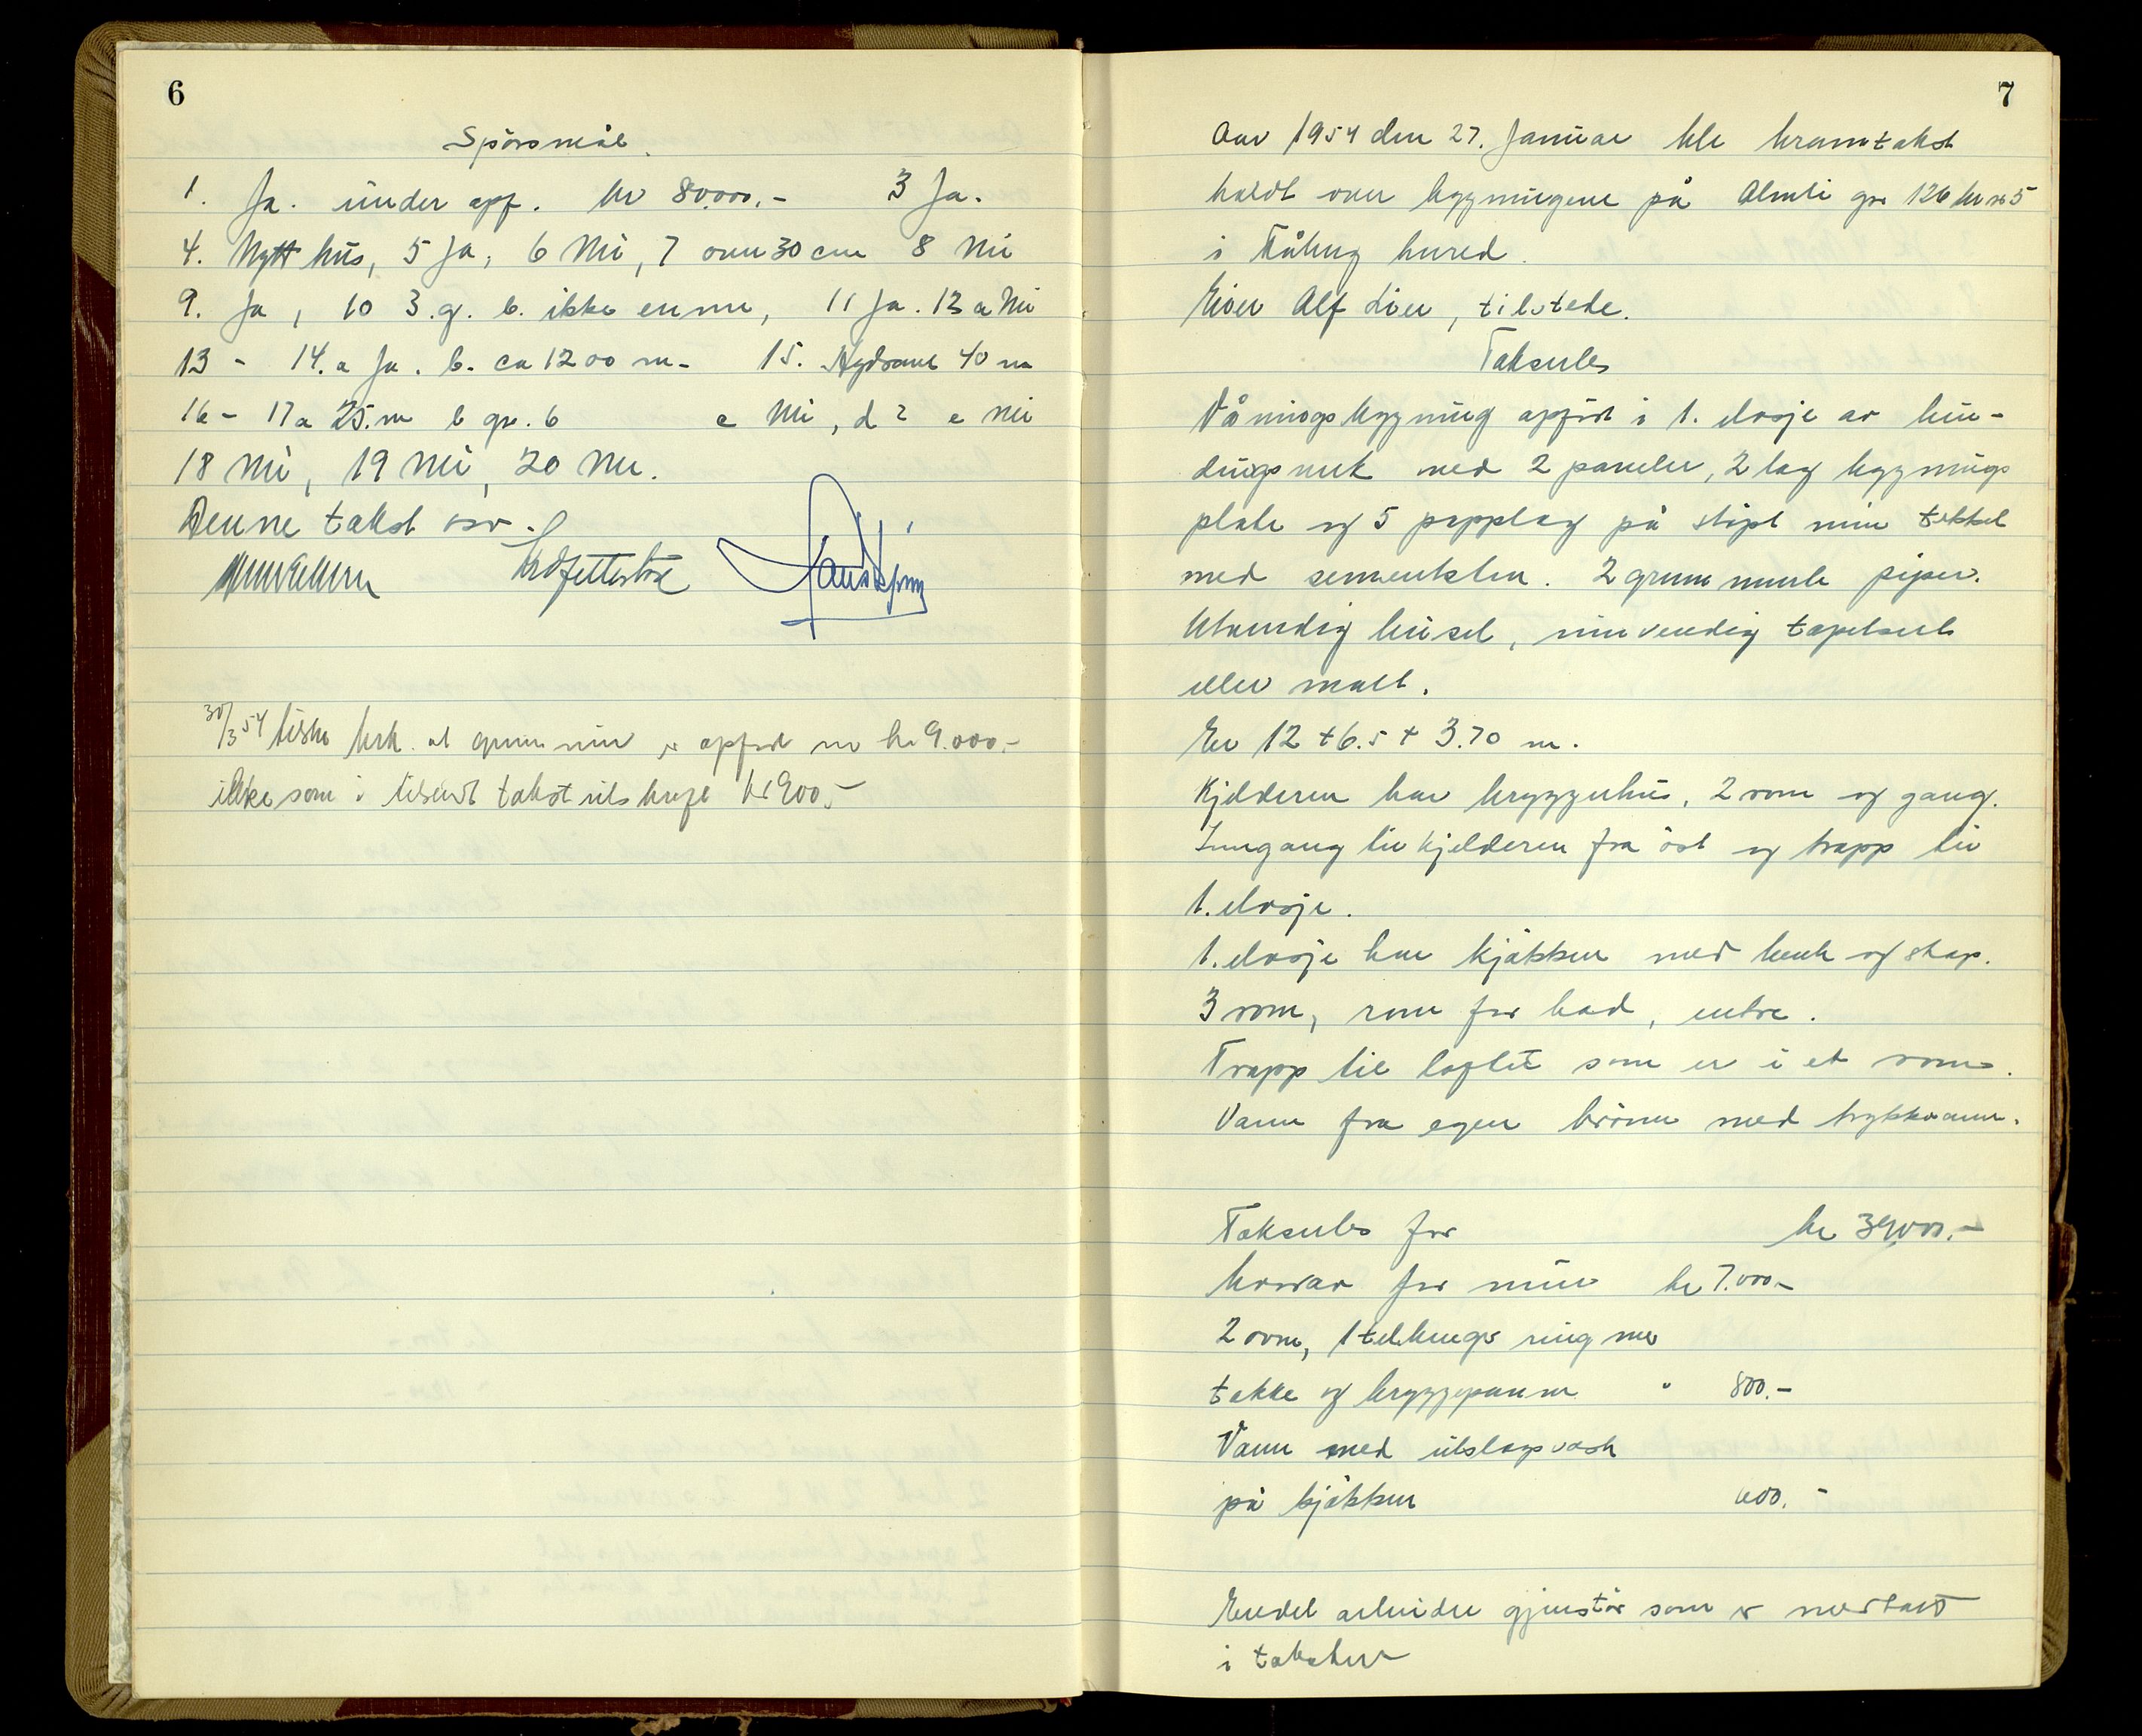 6
Spörsmål.
1. Ja. under opf. kr 80.000.- 3 Ja.
4. Nytt hus, 5 Ja, 6 Nei, 7 over 30 cm 8 Nei
9. Ja, 10 3.g. b. ikke ennu, 11 Ja. 12 a Nei
13 - 14. a Ja. b. ca 1200 m- 15. Hydrant 40 m
16 - 17 a 25. m b gr. 6 c Nei, d 2 e Nei
18 Nei, 19 Nei, 20 Nei.
Denne takst osv.
30/3 54 at grunnmur er opfört m kr 9.000.-
ikke som i tilsendt takst utskrift kr 900.-
7
Aar 1954 den 27. Januar ble branntakst
holdt over bygningene på Almli gr 126 br nr 5
i Våler herred.
Eier Alf Lier, tilstede.
Takseres
Våningsbygning opfört i 1. etasje av bin-
dingsverk med 2 paneler, 2 lag bygnings
plate og 5 papplag på stöpt mur tekket
med sementsten. 2 grunnmurte piper.
Utvendig beiset, innvendig tapetsert
eller malt.
Er 12 + 6.5 + 3.70 m.
Kjelderen har bryggerhus, 2 rom og gang.
Inngang til kjelderen fra öst og trapp til
1. etasje.
1. etasje har kjökken med benk og skap.
3 rom, rom for bad, entre.
Trapp til loftet som er i et rom.
Vann fra egen brönn med trykkvann.
Takseres for kr 39000.-
hvorav for mur kr 7.000.-
2 ovne, 1 med
takke og bryggepanne " 800.-
Vann med utslagsvask
på kjökken 600.-
Endel arbeider gjenstår som er medtatt
i taksten